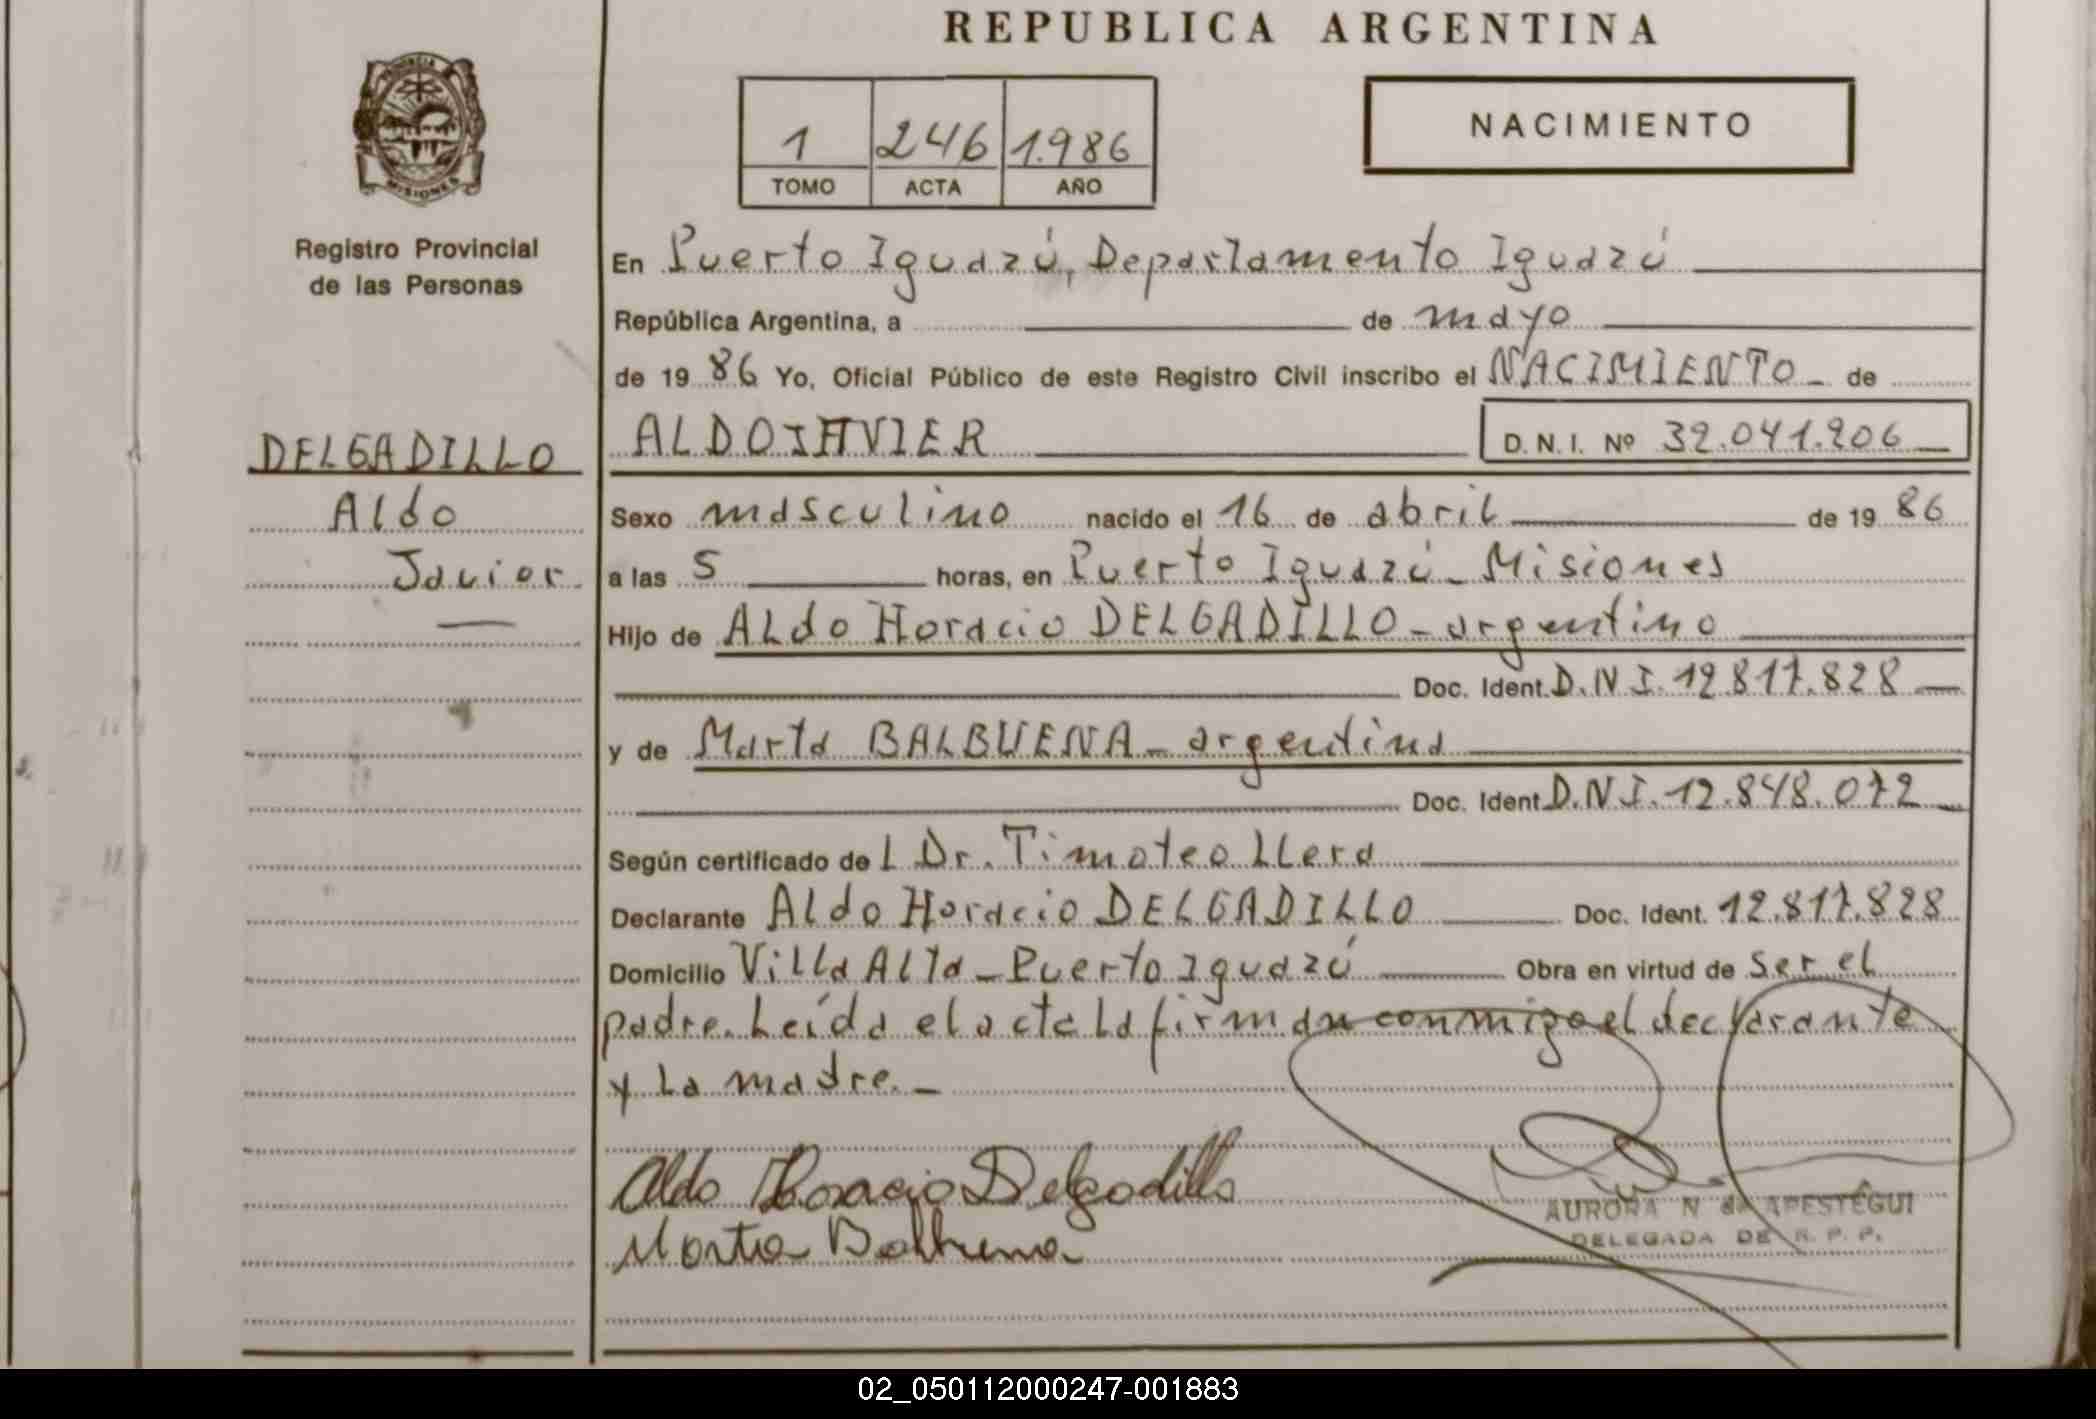 REPUBLICA ARGENTINA
PROVINCIA
MISIONES
Registro Provincial
de las Personas
1 246 1.986
TOMO ACTA AÑO
NACIMIENTO
En Puerto Iguazú, Departamento Iguazú
República Argentina, a de mayo
de 19 86 Yo, Oficial Público de este Registro Civil inscribo el NACIMIENTO de
DELGADILLO
Aldo
Javier
ALDO JAVIER D.N.I. Nº 32.041.206
Sexo masculino nacido el 16 de abril de 19 86
a las 5 horas, en Puerto Iguazú - Misiones
Hijo de Aldo Horacio DELGADILLO - argentino
Doc. Ident. D.N.I. 12.817.828
y de Marta BALBUENA - argentina
Doc. Ident. D.N.I. 12.848.072
Según certificado de l Dr. Timoteo LLera
Declarante Aldo Horacio DELGADILLO Doc. Ident. 12.817.828
Domicilio Villa Alta - Puerto Iguazú Obra en virtud de ser el
padre. Leída el acta la firman conmigo el declarante
y la madre. -
Aldo Horacio Delgadillo
Marta Balbuena
AURORA N de APESTEGUI
DELEGADA DE R. P. P.
02_050112000247-001883